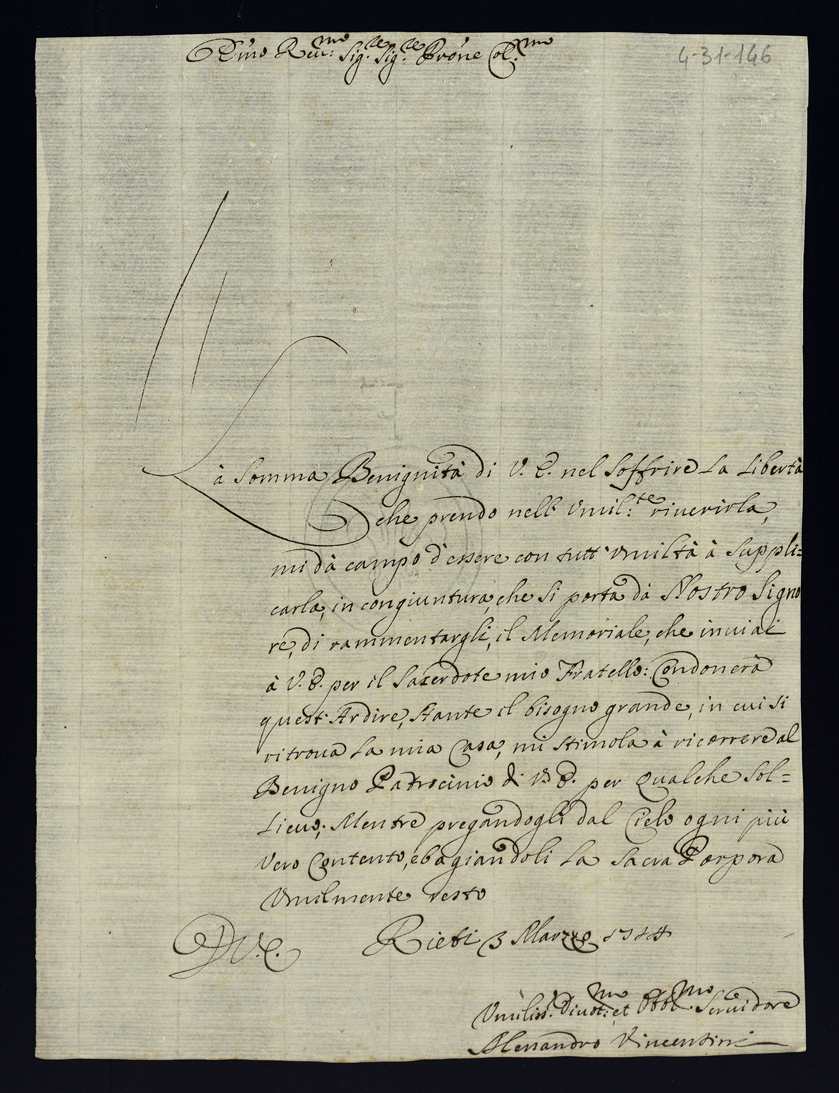 Emo Reu:mo Sig:re Sig:re Prone Col:mo
4-31-146
La Somma Benignità di V. E. nel Soffrire La Libertà
che prendo nell' Vmil:te riuerirla,
mi dà campo d'essere con tutt' Vmiltà à Suppli=
carla, in congiuntura, che si porta dà Nostro Signo
re, di rammentargli, il Memoriale, che inuiai
à V. E. per il Sacerdote mio Fratello: Condonerà
quest' Ardire, Stante il bisogno grande, in cui si
ritroua La mia Casa, mi stimola à ricorrere al
Benigno Patrocinio di V. E. per qualche Sol=
Lieuo; Mentre pregandogli dal Cielo ogni più
Vero Contento, e bagiandoli La Sacra Porpora
Vmilmente resto
D V. E. Rieti 3 Marzo 1714
Vmiliss: Diuot:mo et Obbl:mo Seruidore
Alessandro Vincentini